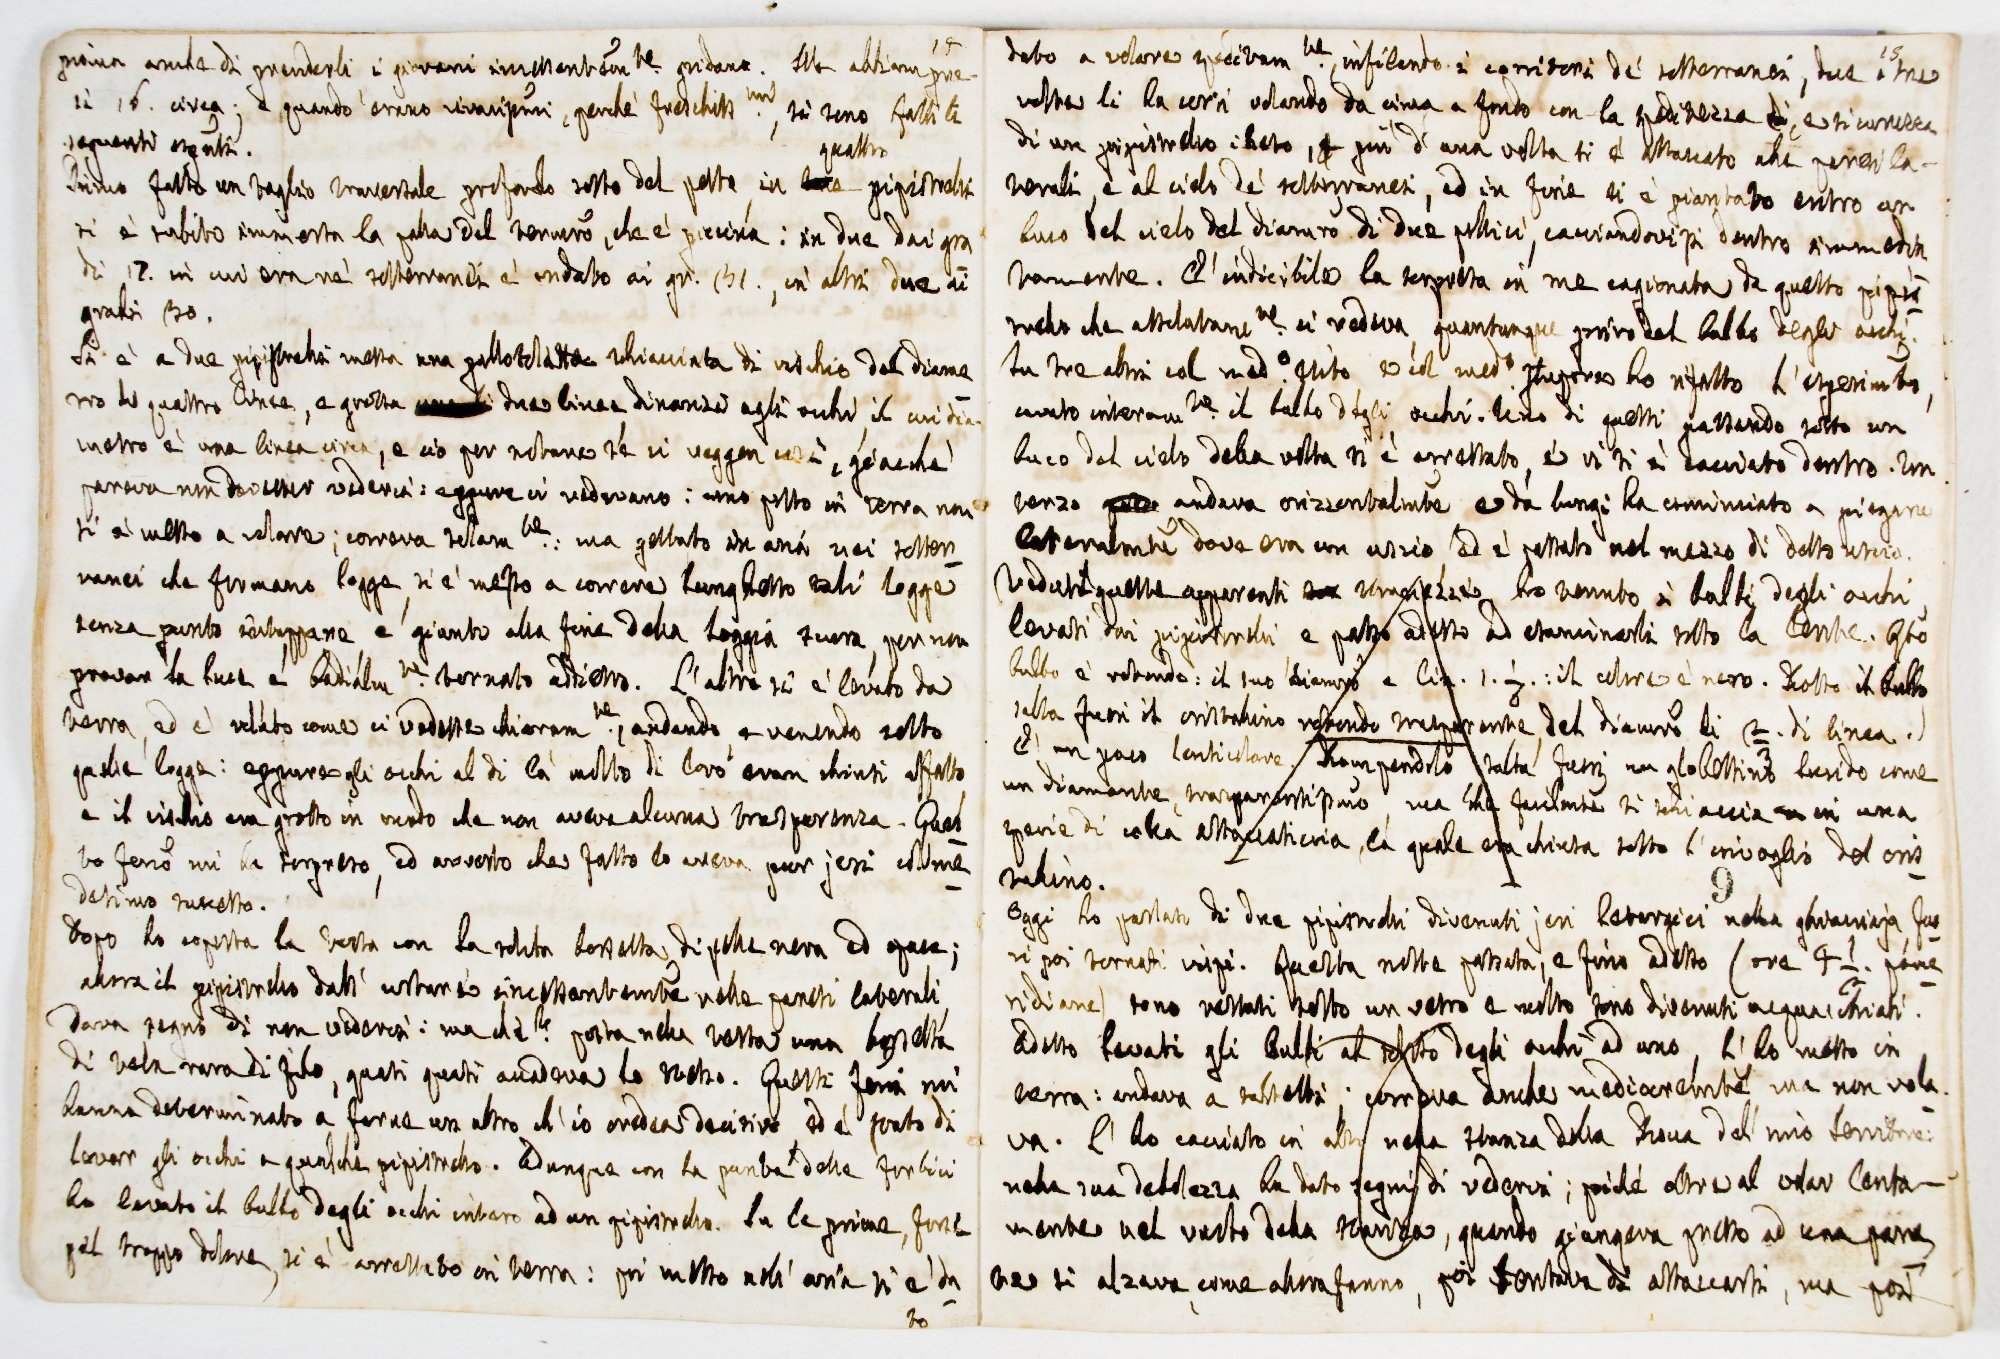 14
prima anche di prenderli i giovani incessantem.te gridano. Ne abbiam pre-
si 16. circa; e quando erano vivacissimi, perchè freschiss.mi, si sono fatti li
seguenti
Primo fatto un taglio trasversale profondo sotto del petto in quattro pipistrelli
si è subito immersa la palla del termo, che è piccina: in due dai gra
di 17. in cui era ne' sotterranei è andato ai gr. 31., in altri due ai
gradi 30.
Si è a due pipistrelli messa una schiacciata di vischio del diame
tro di quattro linee, e grossa due linee dinanzi agli occhi, il cui dia-
metro è una linea circa, e ciò per notare se ci veggon così, giacchè
pareva non dovesser vederci: eppure ci vedevano: uno posto in terra non
si è messo a volare; correva solam.te: ma gettato in aria nei sotter
ranei che formano logge, si è messo a correre lunghesso tali logge
senza punto inciampare, e giunto alla fine della loggia scura, per non
provar la luce è tornato addietro. L'altro si è levato da
terra, ed è volato come ci vedesse chiaram.te, andando, e venendo sotto
quelle logge: eppure gli occhi al di là molto di loro eran chiusi affatto,
e il vischio era grosso in modo che non aveva alcuna trasparenza. Ques
to feno mi ha sorpreso, ed avverto che fatto lo aveva pur jeri col me
desimo successo.
Dopo ho coperta la testa con la solita borsetta di pelle nera ed opaca;
allora il pipistrello dall' urtare incessantemte nelle pareti laterali,
dava segno di non vederci: ma posta nella testa una borsetta
di tela rara di filo, quasi quasi accadeva lo stesso. Questi feni mi
hanno determinato a farne un altro ch' io credea decisivo ed è stato di
levare gli occhi a qualche pipistrello. Adunque con la punta delle forbici
ho levato il bulbo degli occhi intero ad un pipistrello. Su le prime, forse
pel troppo dolore, si è arrestato in terra: poi messo nell' aria si è da
to
15
dato a volare speditam.te, infilando i corridori de' sotterranei, due o tre
volte li ha corsi volando da cima a fondo con la speditezza, e sicurezza
di un pipistrello illeso, e più d' una volta si è attaccato alle pareti la-
terali, e al cielo de' sotterranei, ed in fine si è piantato entro un
buco del cielo del diamro di due pollici, cacciandovisi dentro immedia
tamente. E' indicibile la sorpresa in me cagionata da questo pipis
trello che assolutame.te ci vedeva, quantunque privo del bulbo degli occhi.
Su tre altri col med.o esito e col med.o stupore ho rifatto l' esperimto,
cavato interam.te il bulbo degli occhi. Uno di questi passando sotto un
buco del cielo della volta si è arrestato, e vi si è cacciato dentro. Un
terzo andava orizzontalmte e da lungi ha cominciato a piegare
lateralmte dove era un uscio ed è passato nel mezzo di detto uscio.
Vedute queste apparenti stranezze ho tenuto i bulbi degli occhi,
levati dai pipistrelli e passo adesso ad esaminarli sotto la lente. Qto
bulbo è rotondo: il suo diamro è lin. 1. ½.: il colore è nero. Rotto il bulbo
salta fuori il cristallino rotondo trasparente, del diamro di ⅔. di linea.
E' un poco lenticolare. Rompendolo salta fuori un globettino lucido come
un diamante, trasparentissimo ma che facilmte si schiaccia in una
specie di colla attaccaticcia, la quale era chiusa sotto l' invoglio del cris
tallino.
9
Oggi ho parlato di due pipistrelli divenuti jeri letargici nella ghiacciaja fuo
ri poi tornati vispi. Questa notte passata, e fino adesso (ore 4 ½. pome
ridiane) sono restati sotto un vetro e molto sono divenuti acquacchiati.
Adesso levati gli bulbi al solito degli occhi ad uno, l' ho messo in
terra: andava a saltelli; correva anche mediocremte ma non vola
va. L' ho cacciato in alto nella stanza della del mio
nella sua debolezza ha dato segni di vederci; poichè oltre al volar lenta-
mente nel vasto della stanza, quando giungeva presso ad una pare
te si alzava, come allora fanno, poi tentava di attaccarsi, ma poi